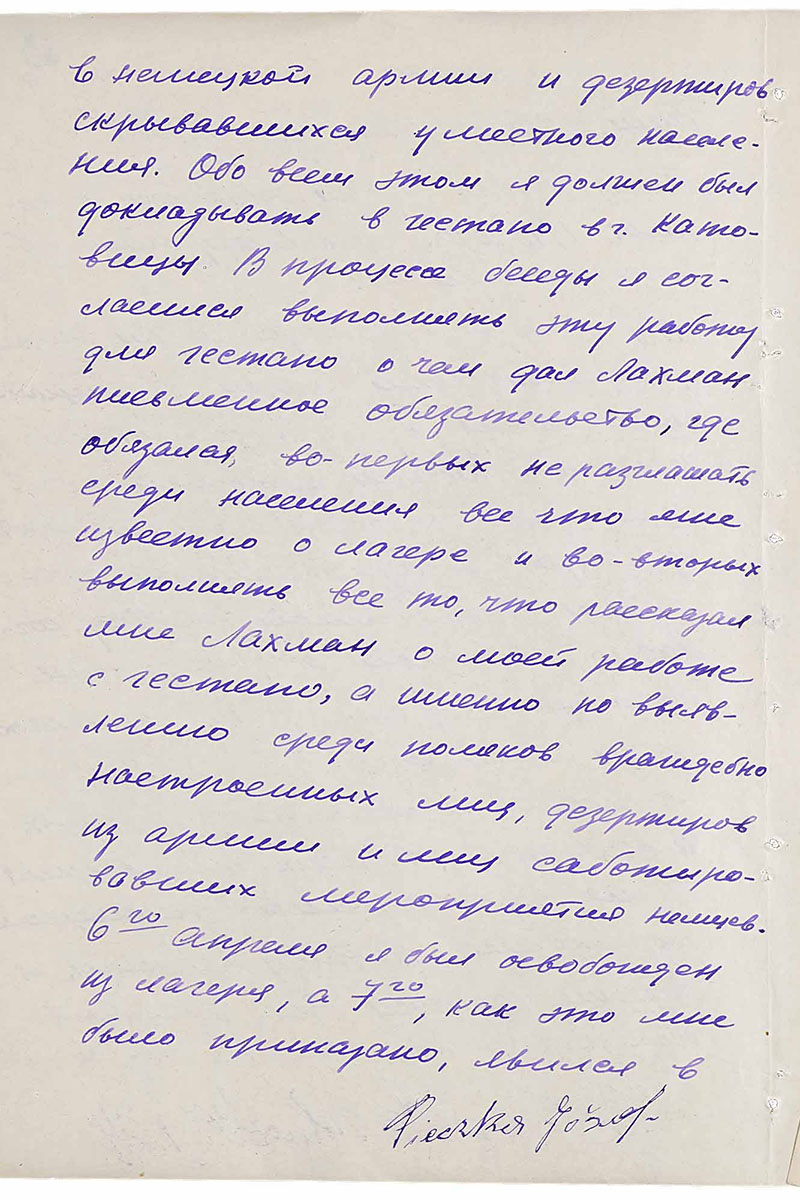 в немецкой армии и дезертиров
скрывавшихся у местного населе-
ния. Обо всем этом я должен был
докладывать в гестапо в г. Като-
вицы. В процессе беседы я сог-
ласился выполнять эту работу
для гестапо о чем дал Лахман
письменное обязательство, где
обязался, во-первых не разглашать
среди населения все что мне
известно о лагере и во-вторых
выполнять все то, что рассказал
мне Лахман о моей работе
с гестапо, а именно по выяв-
лению среди поляков враждебно
настроенных лиц, дезертиров
из армии и лиц саботиро-
вавших мероприятия немцев.
6го апреля я был освобожден
из лагеря, а 7го, как это мне
было приказано, явился в
Pieczka Józef